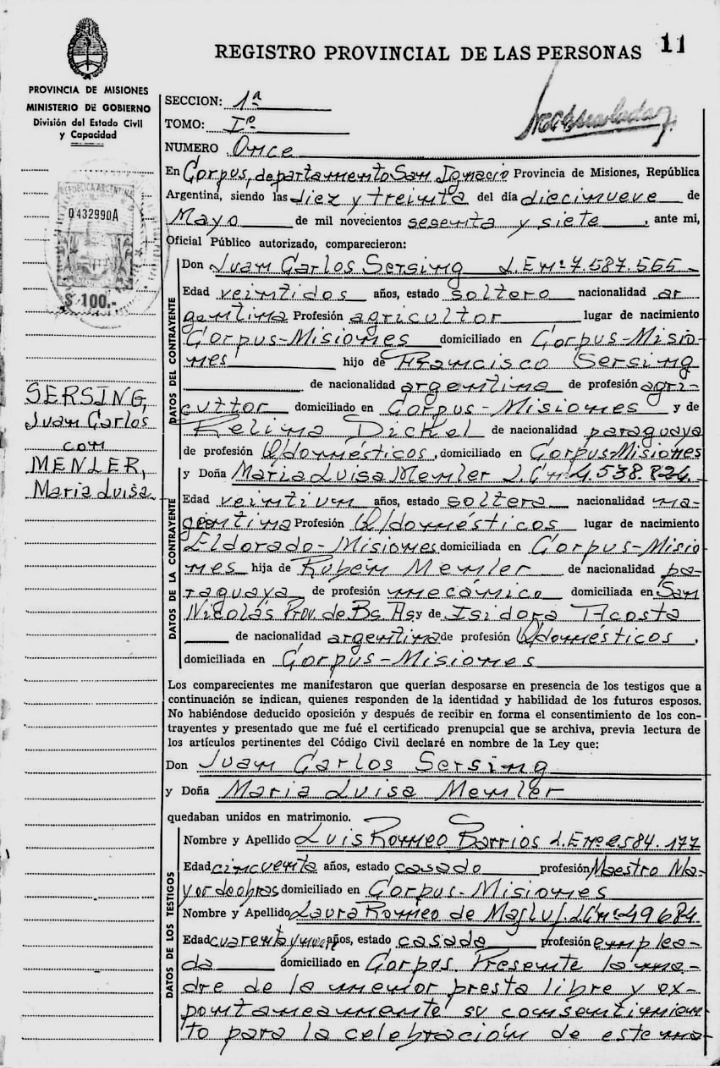 REGISTRO PROVINCIAL DE LAS PERSONAS 11
PROVINCIA DE MISIONES
MINISTERIO DE GOBIERNO
División del Estado Civil
y Capacidad
REPUBLICA ARGENTINA
0432990A
$ 100.-
SERSING,
Juan Carlos
con
MENLER,
Maria Luisa.
SECCION: 1ª
TOMO: Iº
NUMERO Once
En Corpus, departamento San Ignacio Provincia de Misiones, República
Argentina, siendo las diez y treinta del día diecinueve de
Mayo de mil novecientos sesenta y siete, ante mi,
Oficial Público autorizado, comparecieron:
DATOS DEL CONTRAYENTE
Don Juan Carlos Sersing L.Enº 7.587.565-
Edad veintidos años, estado soltero nacionalidad ar
gentina Profesión agricultor lugar de nacimiento
Corpus-Misiones domiciliado en Corpus-Misio-
nes hijo de Francisco Sersing
de nacionalidad argentina de profesión agri-
cultor domiciliado en Corpus-Misiones y de
Felima Dickel de nacionalidad paraguaya
de profesión Q/domésticos, domiciliado en Corpus-Misiones
y Doña Maria Luisa Menler L.Cnº 4.538.824.
DATOS DE LA CONTRAYENTE
Edad veintiun años, estado soltera nacionalidad
gentina Profesión Q/domésticos lugar de nacimiento
Eldorado-Misiones domiciliada en Corpus-Misio
nes hija de Rubén Menler de nacionalidad pa-
raguaya de profesión mecánico domiciliada en San
Nicolás Prov. de Bs As y de Isidora Acosta
de nacionalidad argentina de profesión Q/domésticos,
domiciliada en Corpus-Misiones
Los comparecientes me manifestaron que querían desposarse en presencia de los testigos que a
continuación se indican, quienes responden de la identidad y habilidad de los futuros esposos.
No habiéndose deducido oposición y después de recibir en forma el consentimiento de los con-
trayentes y presentado que me fué el certificado prenupcial que se archiva, previa lectura de
los artículos pertinentes del Código Civil declaré en nombre de la Ley que:
Don Juan Carlos Sersing
y Doña Maria Luisa Menler
quedaban unidos en matrimonio.
DATOS DE LOS TESTIGOS
Nombre y Apellido Luis Romeo Barrios L.Enº 2584.177
Edad cincuenta años, estado casado profesión Maestro Ma-
yor de obras domiciliado en Corpus-Misiones
Nombre y Apellido Laura Romeo de Masluf L.Cnº 49684.
Edad cuarenta y nueve años, estado casada profesión emplea-
da domiciliado en Corpus. Presente la ma-
dre de la menor presta libre y ex-
pontaneamente su consentimien
to para la celebración de este ma-